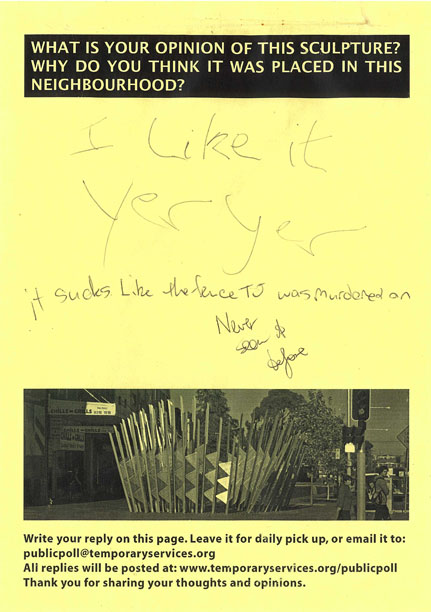 WHAT IS YOUR OPINION OF THIS SCULPTURE?
WHY DO YOU THINK IT WAS PLACED IN THIS
NEIGHBOURHOOD?
I Like it
Yer Yer
it sucks. Like the fence TJ was murdered on
Never
seen it
before
Write your reply on this page. Leave it for daily pick up, or email it to:
publicpoll@temporaryservices.org
All replies will be posted at: www.temporaryservices.org/publicpoll
Thank you for sharing your thoughts and opinions.